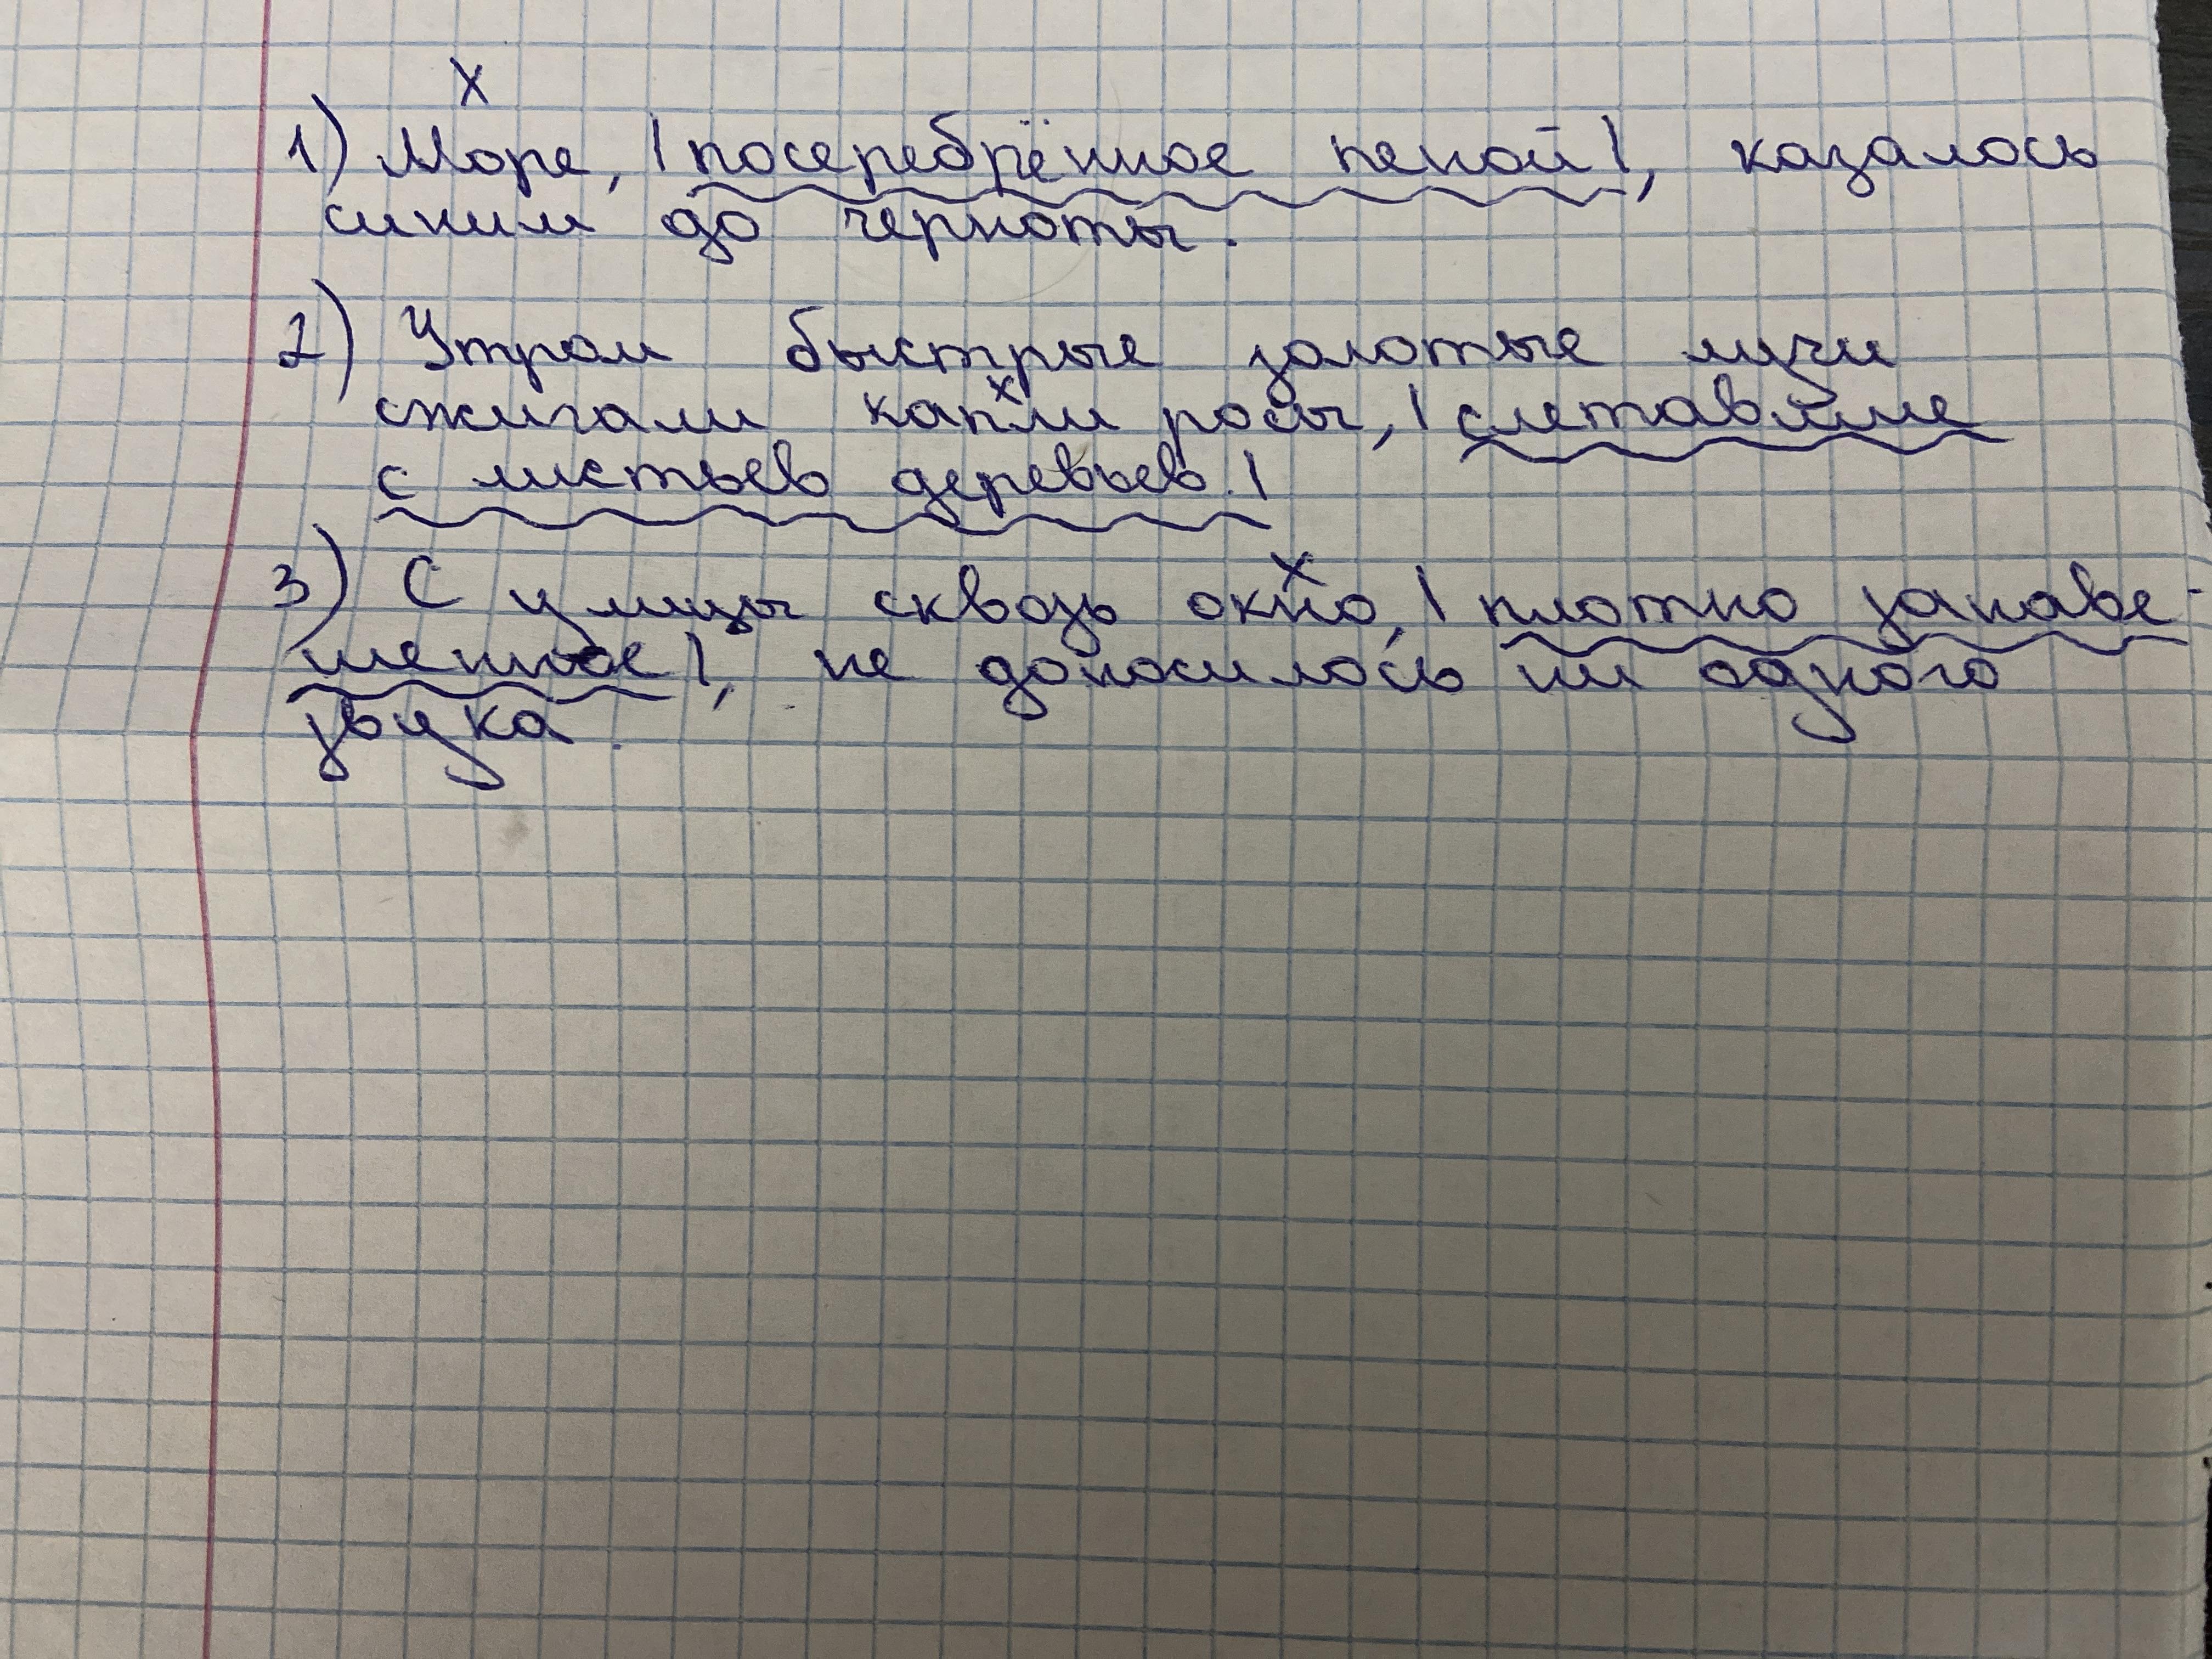 х
1) Море, |посеребрённое пеной|, казалось
синим до черноты.
2) Утром быстрые золотые лучи
х
сжигали капли росы, | слетавшие
с листьев деревьев. |
х
3) С улицы сквозь окно, | плотно занаве-
шенное|, не доносилось ни одного
звука.